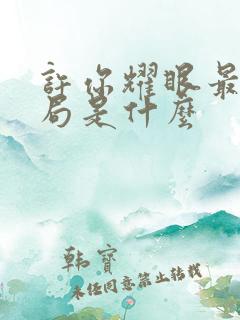 許你耀眼最
局是什麼
韩寶
未经同意禁止转载